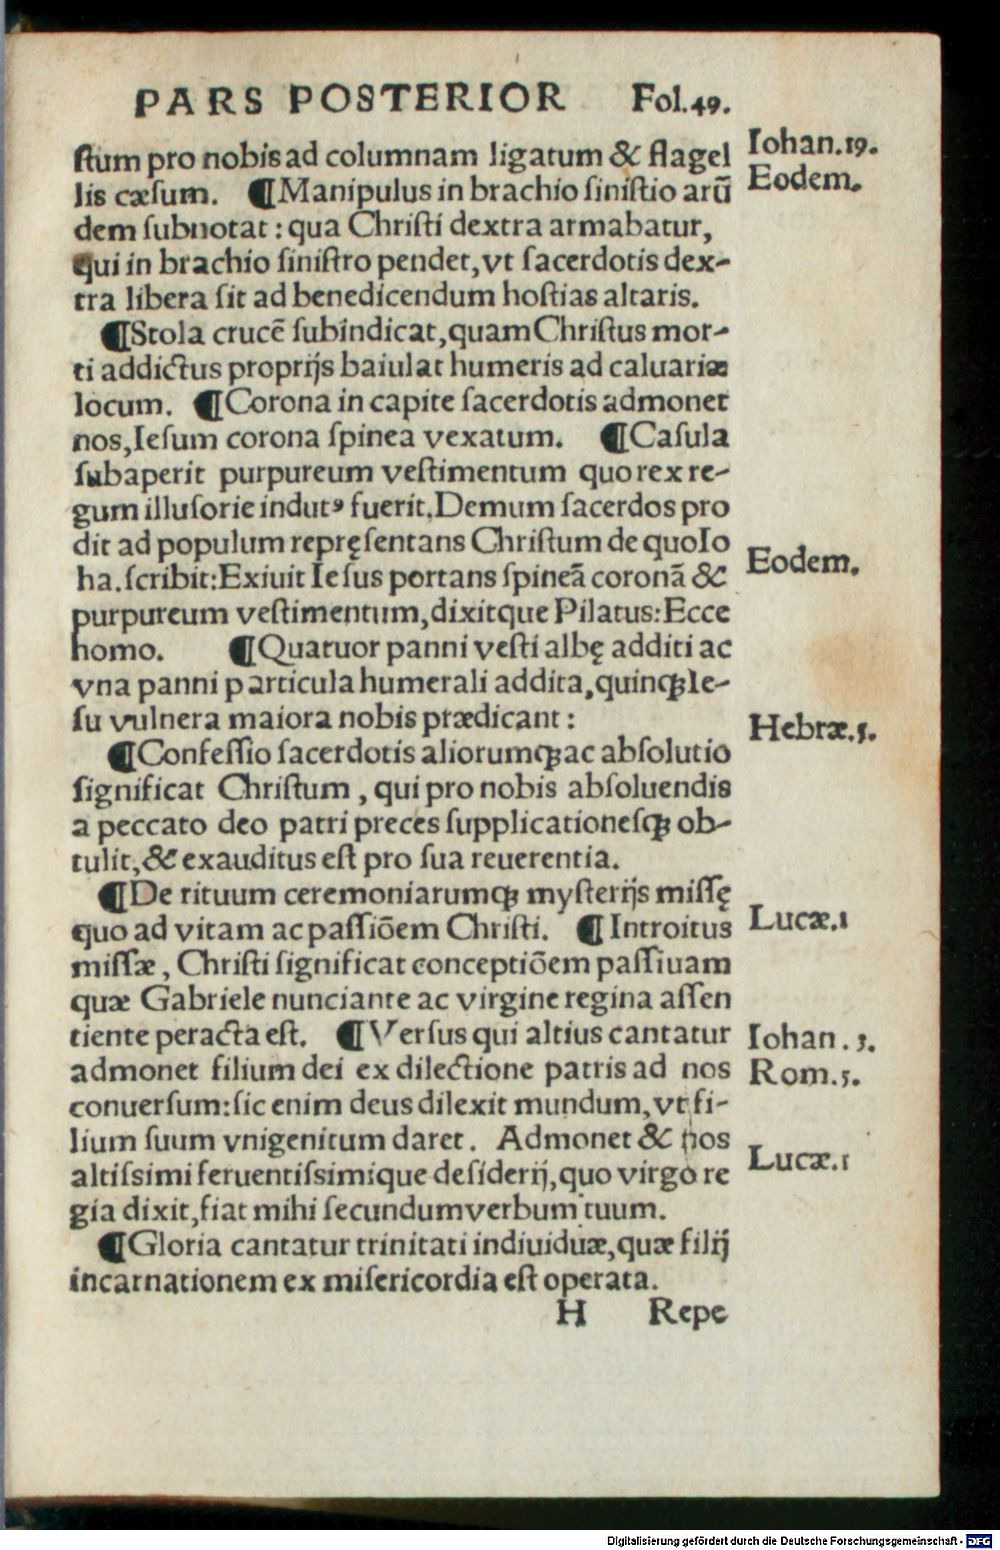 PARS POSTERIOR Fol.49.
ſtum pro nobis ad columnam ligatum & flagel
Iohan.19.
lis cæſum. ¶Manipulus in brachio ſiniſtio arũ
Eodem.
dem ſubnotat : qua Chriſti dextra armabatur,
qui in brachio ſiniſtro pendet, vt ſacerdotis dex-
tra libera ſit ad benedicendum hoſtias altaris.
¶Stola crucẽ ſubindicat, quam Chriſtus mor-
ti addictus proprijs baiulat humeris ad caluariæ
locum. ¶Corona in capite ſacerdotis admonet
nos, Ieſum corona ſpinea vexatum. ¶Caſula
ſubaperit purpureum veſtimentum quo rex re-
gum illuſorie indutꝰ fuerit. Demum ſacerdos pro
dit ad populum repręſentans Chriſtum de quo Io
ha. ſcribit: Exiuit Ieſus portans ſpineã coronã &
Eodem.
purpureum veſtimentum, dixitque Pilatus: Ecce
homo. ¶Quatuor panni veſti albę additi ac
vna panni particula humerali addita, quinqꝫ Ie-
ſu vulnera maiora nobis prædicant :
Hebræ.5.
¶Confeſſio ſacerdotis aliorumqꝫ ac abſolutio
ſignificat Chriſtum , qui pro nobis abſoluendis
a peccato deo patri preces ſupplicationeſqꝫ ob-
tulit, & exauditus eſt pro ſua reuerentia.
¶De rituum ceremoniarumqꝫ myſterijs miſſę
quo ad vitam ac paſſiõem Chriſti. ¶Introitus
Lucæ.1
miſſæ , Chriſti ſignificat conceptiõem paſſiuam
quæ Gabriele nunciante ac virgine regina aſſen
tiente peracta eſt. ¶Verſus qui altius cantatur
Iohan.3.
admonet filium dei ex dilectione patris ad nos
Rom.5.
conuerſum: ſic enim deus dilexit mundum, vt fi-
lium ſuum vnigenitum daret. Admonet & nos
altiſsimi feruentiſsimique deſiderij, quo virgo re
Lucæ.1
gia dixit, fiat mihi ſecundum verbum tuum.
¶Gloria cantatur trinitati indiuiduæ, quæ filij
incarnationem ex miſericordia eſt operata.
H Repe
Digitalisierung gefördert durch die Deutsche Forschungsgemeinschaft - DFG